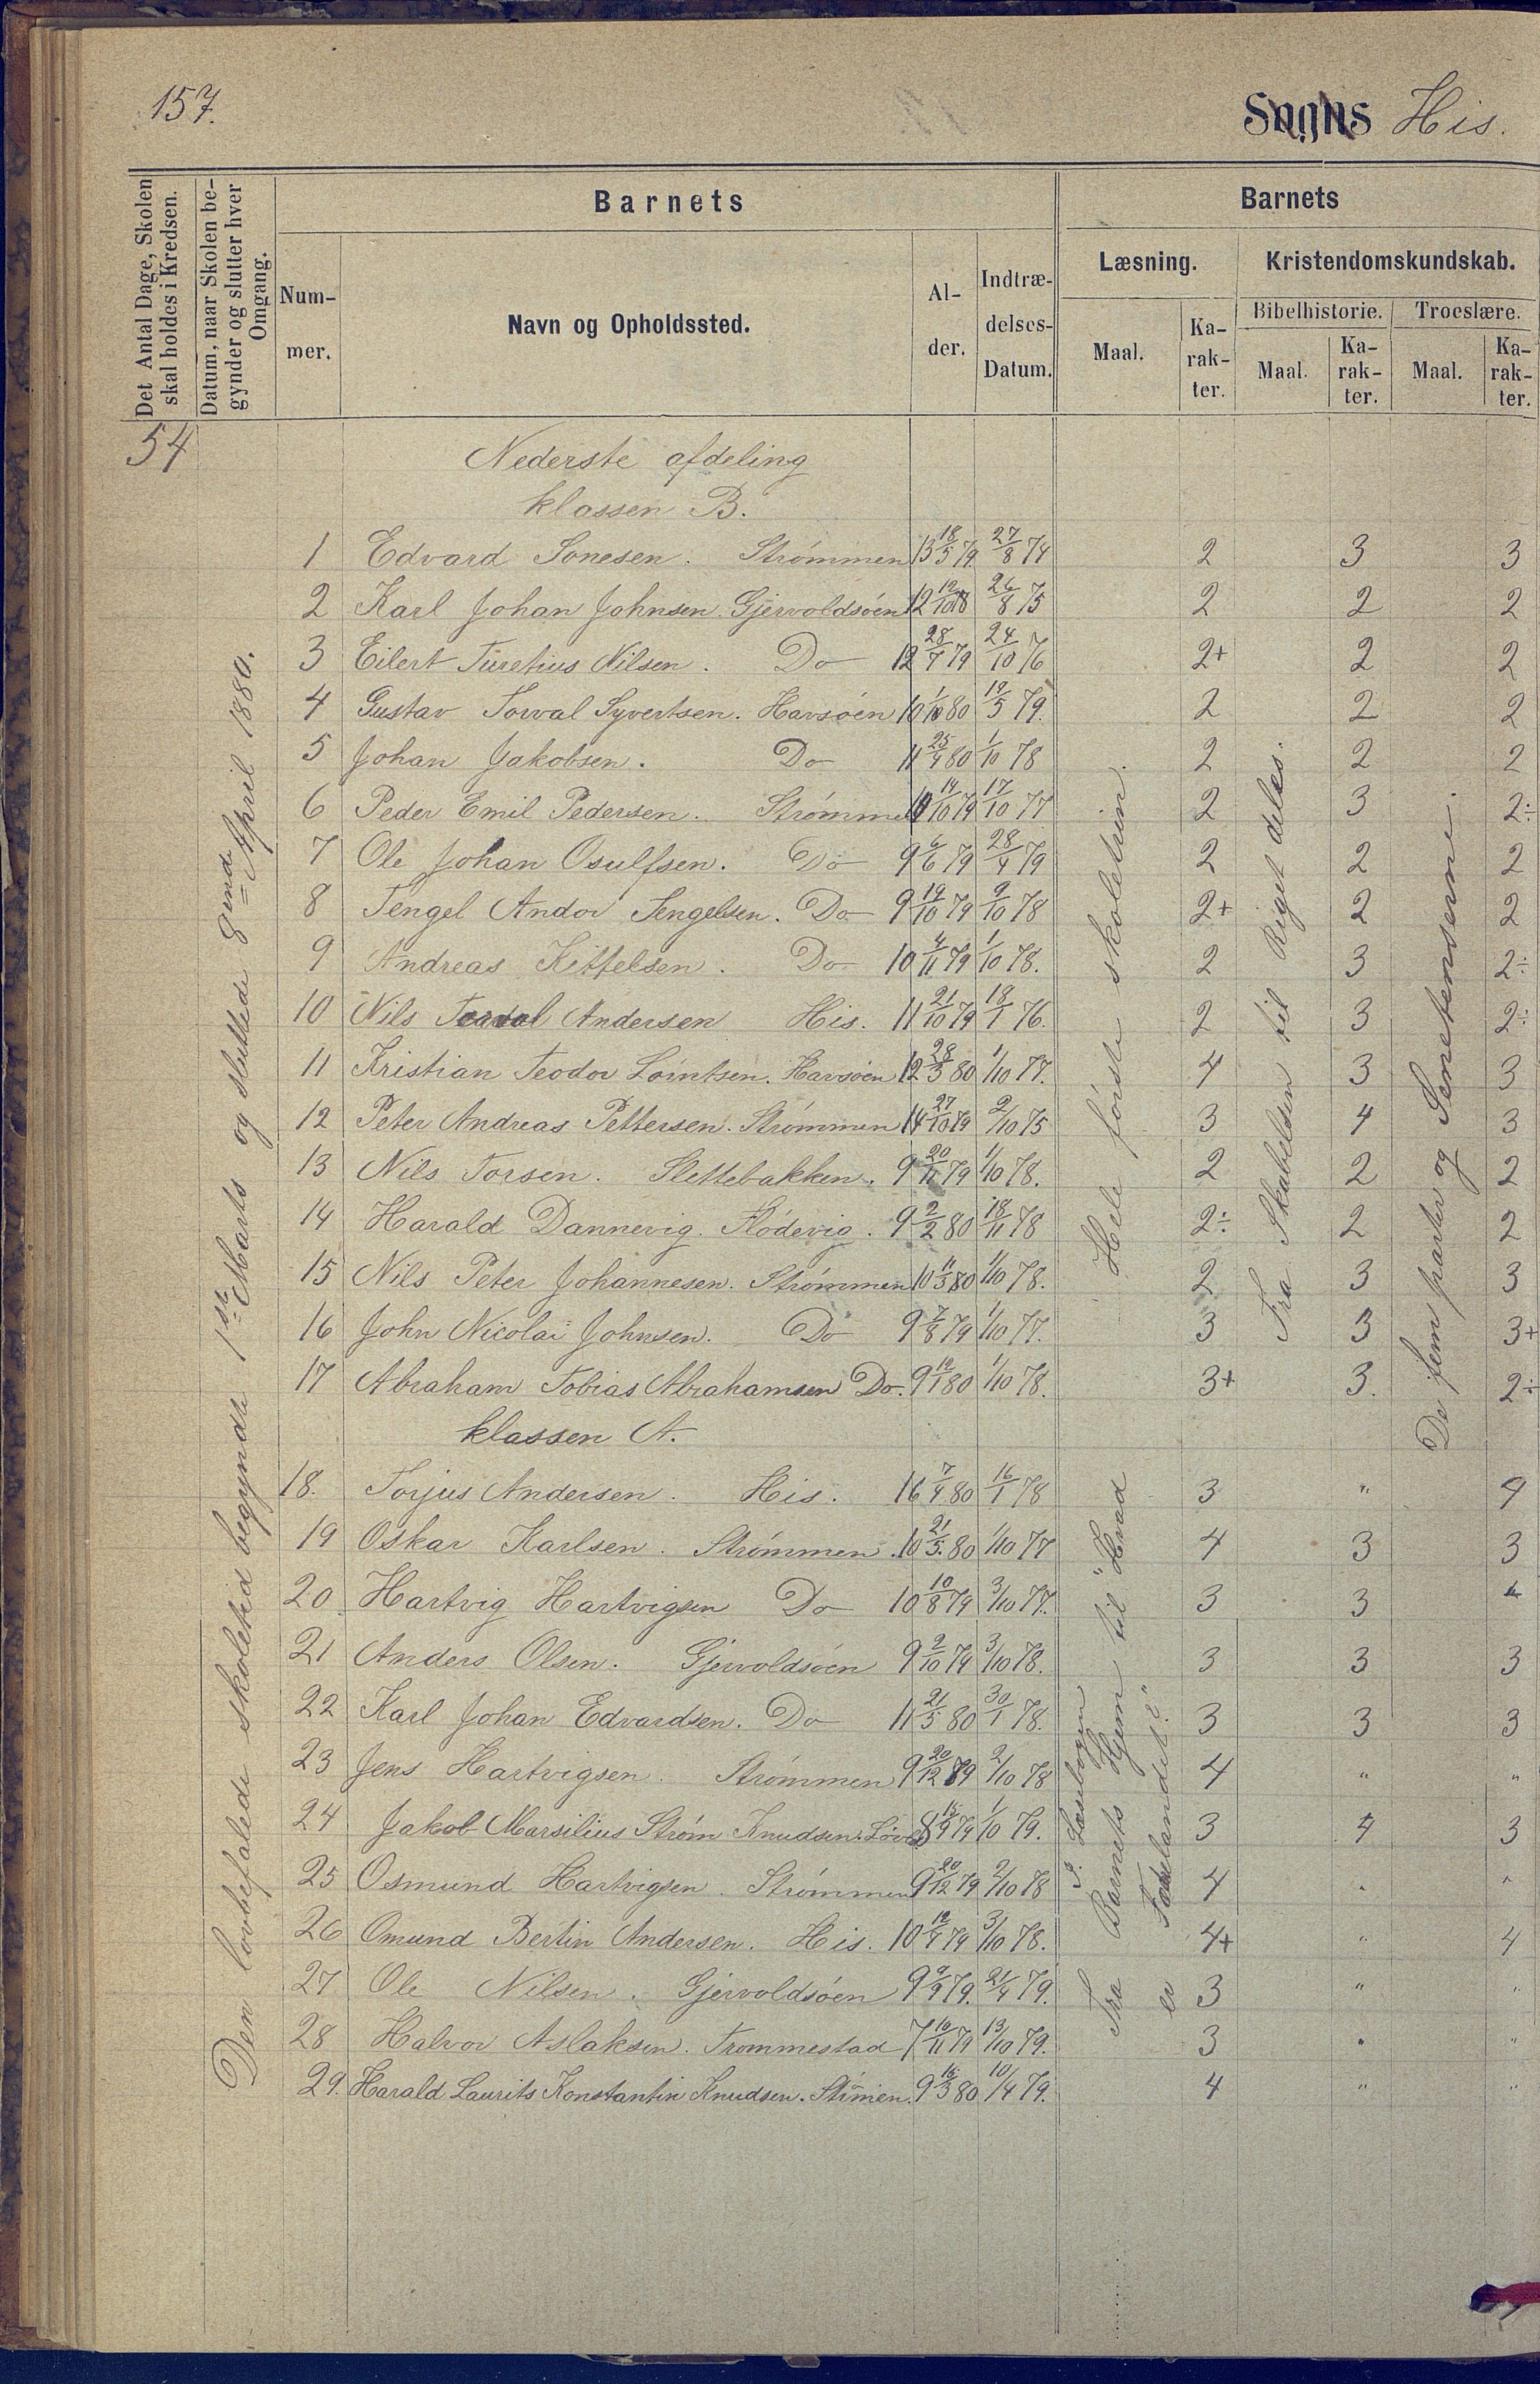 157.
Sogns His.
Det Antal Dage, Skolen skal holdes i Kredsen.
Datum, naar Skolen begynder og slutter hver Omgang.
Barnets
Barnets
Nummer.
Navn og Opholdssted.
Alder.
Indtrædelses-Datum.
Læsning.
Kristendomskundskab.
Maal.
Karakter.
Bibelhistorie.
Troeslære.
Maal.
Karakter.
Maal.
Karakter.
54
Den lovbefalede skoletid begyndte 1ste Marts og sluttede 8 April 1880.
Nederste afdeling
klassen B.
1 Edvard Tonesen. Strømmen 13 18/5 79 27/8 74 2 3 3
2 Karl Johan Johnsen. Gjervoldsøen 12 26/8 75 2 2 2
3 Eilert Nilsen. Do 12 28/7 79 24/10 76 2+ 2 2
4 Gustav Torval Syvertsen. Havsøen 10 80 19/5 79. 2 2 2
5 Johan Jakobsen. Do 11 25/4 80 1/10 78 2 2 2
6 Peder Emil Pedersen. Strømmen 14/10 79 17/10 77 2 3 2÷
7 Ole Johan Osulfsen. Do 9 6/6 79 28/4 79 2 2 2
8 Tengel Andor Tengelsen. Do 9 19/10 79 9/10 78 2+ 2 2
9 Andreas Kittelsen. Do 10 4/11 79 1/10 78. 2 3 2÷
10 Nils Andersen His. 11 21/10 79 18/1 76. 2 3 2÷
11 Kristian Teodor Lorntsen. Havsøen 12 28/3 80 1/10 77. 4 3 3
12 Peter Andreas Pettersen. Strømmen 14 27/10 79 2/10 75 3 4 3
13 Nils Torsen. Slettebakken. 9 20/11 79 1/10 78. 2 2 2
14 Harald Dannevig. Flødevig. 9 2/2 80 18/11 78 2÷ 2 2
15 Nils Peter Johannesen. Strømmen 10 11/3 80 1/10 78. 2 3 3
16 John Nicolai Johnsen. Do 9 7/8 79 1/10 77. 3 3 3+
17 Abraham Tobias Abrahamsen Do. 9 19/1 80 1/10 78. 3+ 3. 2÷
Hele første skoletrin.
Fra Skabelsen til Riget deles.
De fem parter og
klassen A.
18. Torjus Andersen. His. 16 7/4 80 16/1 78 3 " 4
19 Oskar Karlsen. Strømmen. 10 21/5 80 1/10 77 4 3 3
20. Hartvig Hartvigsen Do 10 10/8 79 3/10 77. 3 3
21 Anders Olsen. Gjervoldsøen 9 2/10 79 3/10 78. 3 3 3
22 Karl Johan Edvardsen. Do 11 21/5 80 30/1 78. 3 3 3
23 Jens Hartvigsen. Strømmen 9 20/12 79 2/10 78 4 " "
24 Jakob Marsilius Strøm Knudsen. 8 79 1/10 79. 3 4 3
25 Osmund Hartvigsen. Strømmen 9 20/12 79 2/10 78 4 " "
26 Omund Bertin Andersen. His. 10 19/4 79 3/10 78. 4+ " 4
27 Ole Nilsen. Gjervoldsøen 9 9/9 79. 21/4 79. 3 " "
28 Halvor Aslaksen. Trommestad 7 10/11 79 13/10 79. 3 " "
29. Harald Laurits Konstantin Knudsen. Strømen. 9 16/3 80 10/4 79. 4 " "
I Læsebogen
Fra Barnets Hjem til "Hvad
er Fædrelandet?"